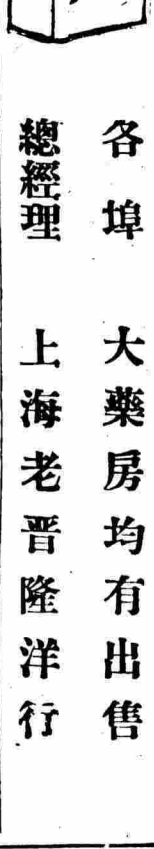 各埠　大藥房均有出售
總經理　上海老晋隆洋行